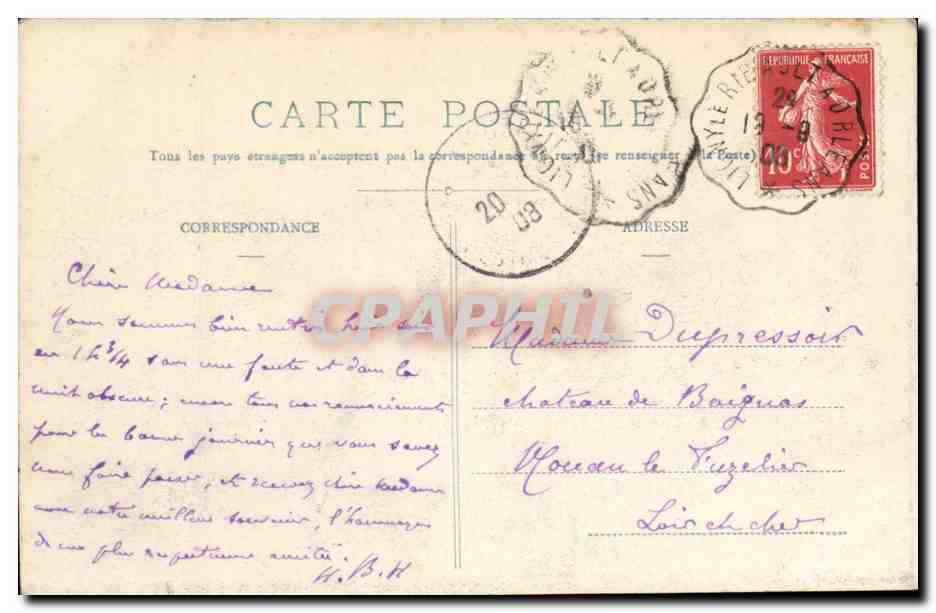 CARTE POSTALE
Tous les pays étrangers n'acceptent pas la correspondance au recto (se renseigner à la Poste)
CORRESPONDANCE
ADRESSE
REPUBLIQUE FRANÇAISE
10c
POSTES
LIGNY LE RIBAULT A ORLEANS
24
19 -9
08
LIGNY
ORLEANS
20
08
CPAPHIL
Chère Madame
Nous sommes bien rentrés hier soir
en 1h 3/4 sans une faute et dans la
nuit obscure; encore tous nos remerciements
pour la bonne journée que vous avez
nous faire passer, et recevez chère Madame
avec notre meilleur souvenir, l'hommage
de ma plus respectueuse amitié.
H.B.H
Madame Dupressoir
chateau de Baignas
Mouan le Fuzelier
Loir ch cher